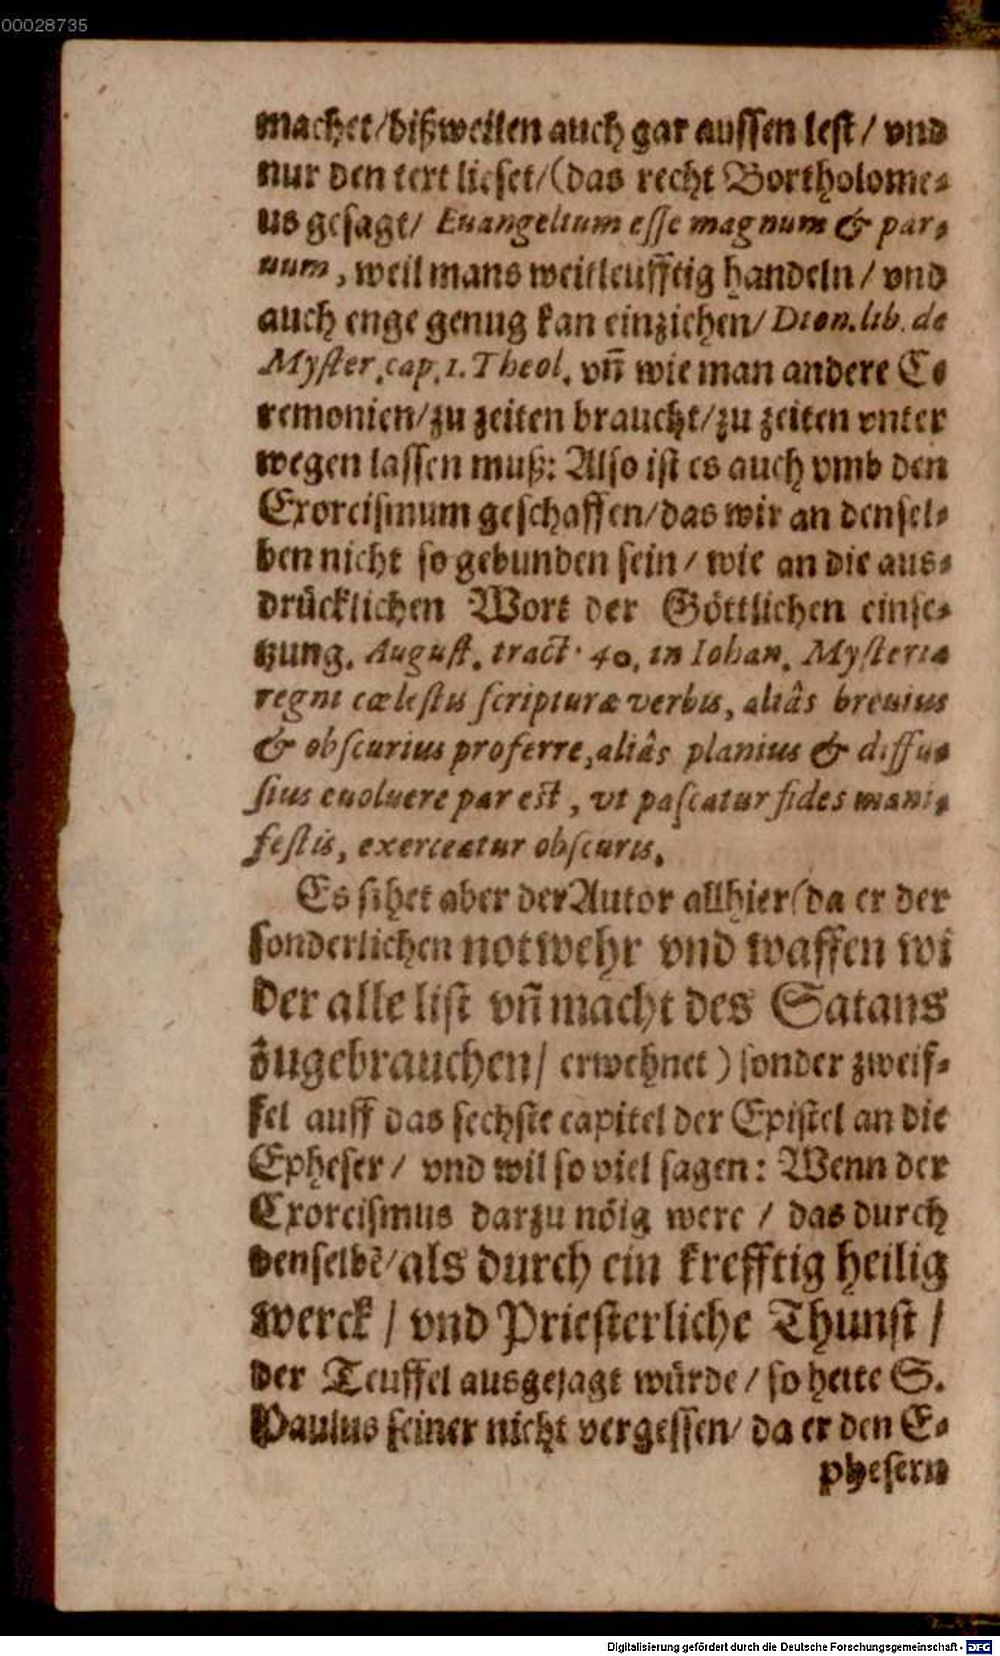 00028735
machet/bißweilen auch gar aussen lest/ vnd
nur den text lieset/(das recht Bortholome⸗
us gesagt/ Euangelium esse magnum & par⸗
uum, weil mans weitleufftig handeln/ vnd
auch enge genug kan einziehen/ Dion. lib. de
Myster. cap. 1. Theol. vñ wie man andere Ce
remonien/zu zeiten braucht/zu zeiten vnter
wegen lassen muß: Also ist es auch vmb den
Exorcismum geschaffen/das wir an densel⸗
ben nicht so gebunden sein/ wie an die aus⸗
drücklichen Wort der Göttlichen einse⸗
tzung. August. tract. 40. in Iohan. Mysteria
regni cælestis scripturæ verbis, aliâs breuius
& obscurius proferre, aliâs planius & diffu⸗
sius euoluere par est, vt pascatur fides mani⸗
festis, exerceatur obscuris.
Es sihet aber der Autor allhier(da er der
sonderlichen notwehr vnd waffen wi
der alle list vñ macht des Satans
zugebrauchen/ erwehnet) sonder zweif⸗
fel auff das sechste capitel der Epistel an die
Epheser/ vnd wil so viel sagen: Wenn der
Exorcismus darzu nöig were/ das durch
denselbẽ/als durch ein krefftig heilig
werck/ vnd Priesterliche Thunst/
der Teuffel ausgejagt würde/ so hette S.
Paulus seiner nicht vergessen/ da er den E⸗
phesern
Digitalisierung gefördert durch die Deutsche Forschungsgemeinschaft - DFG